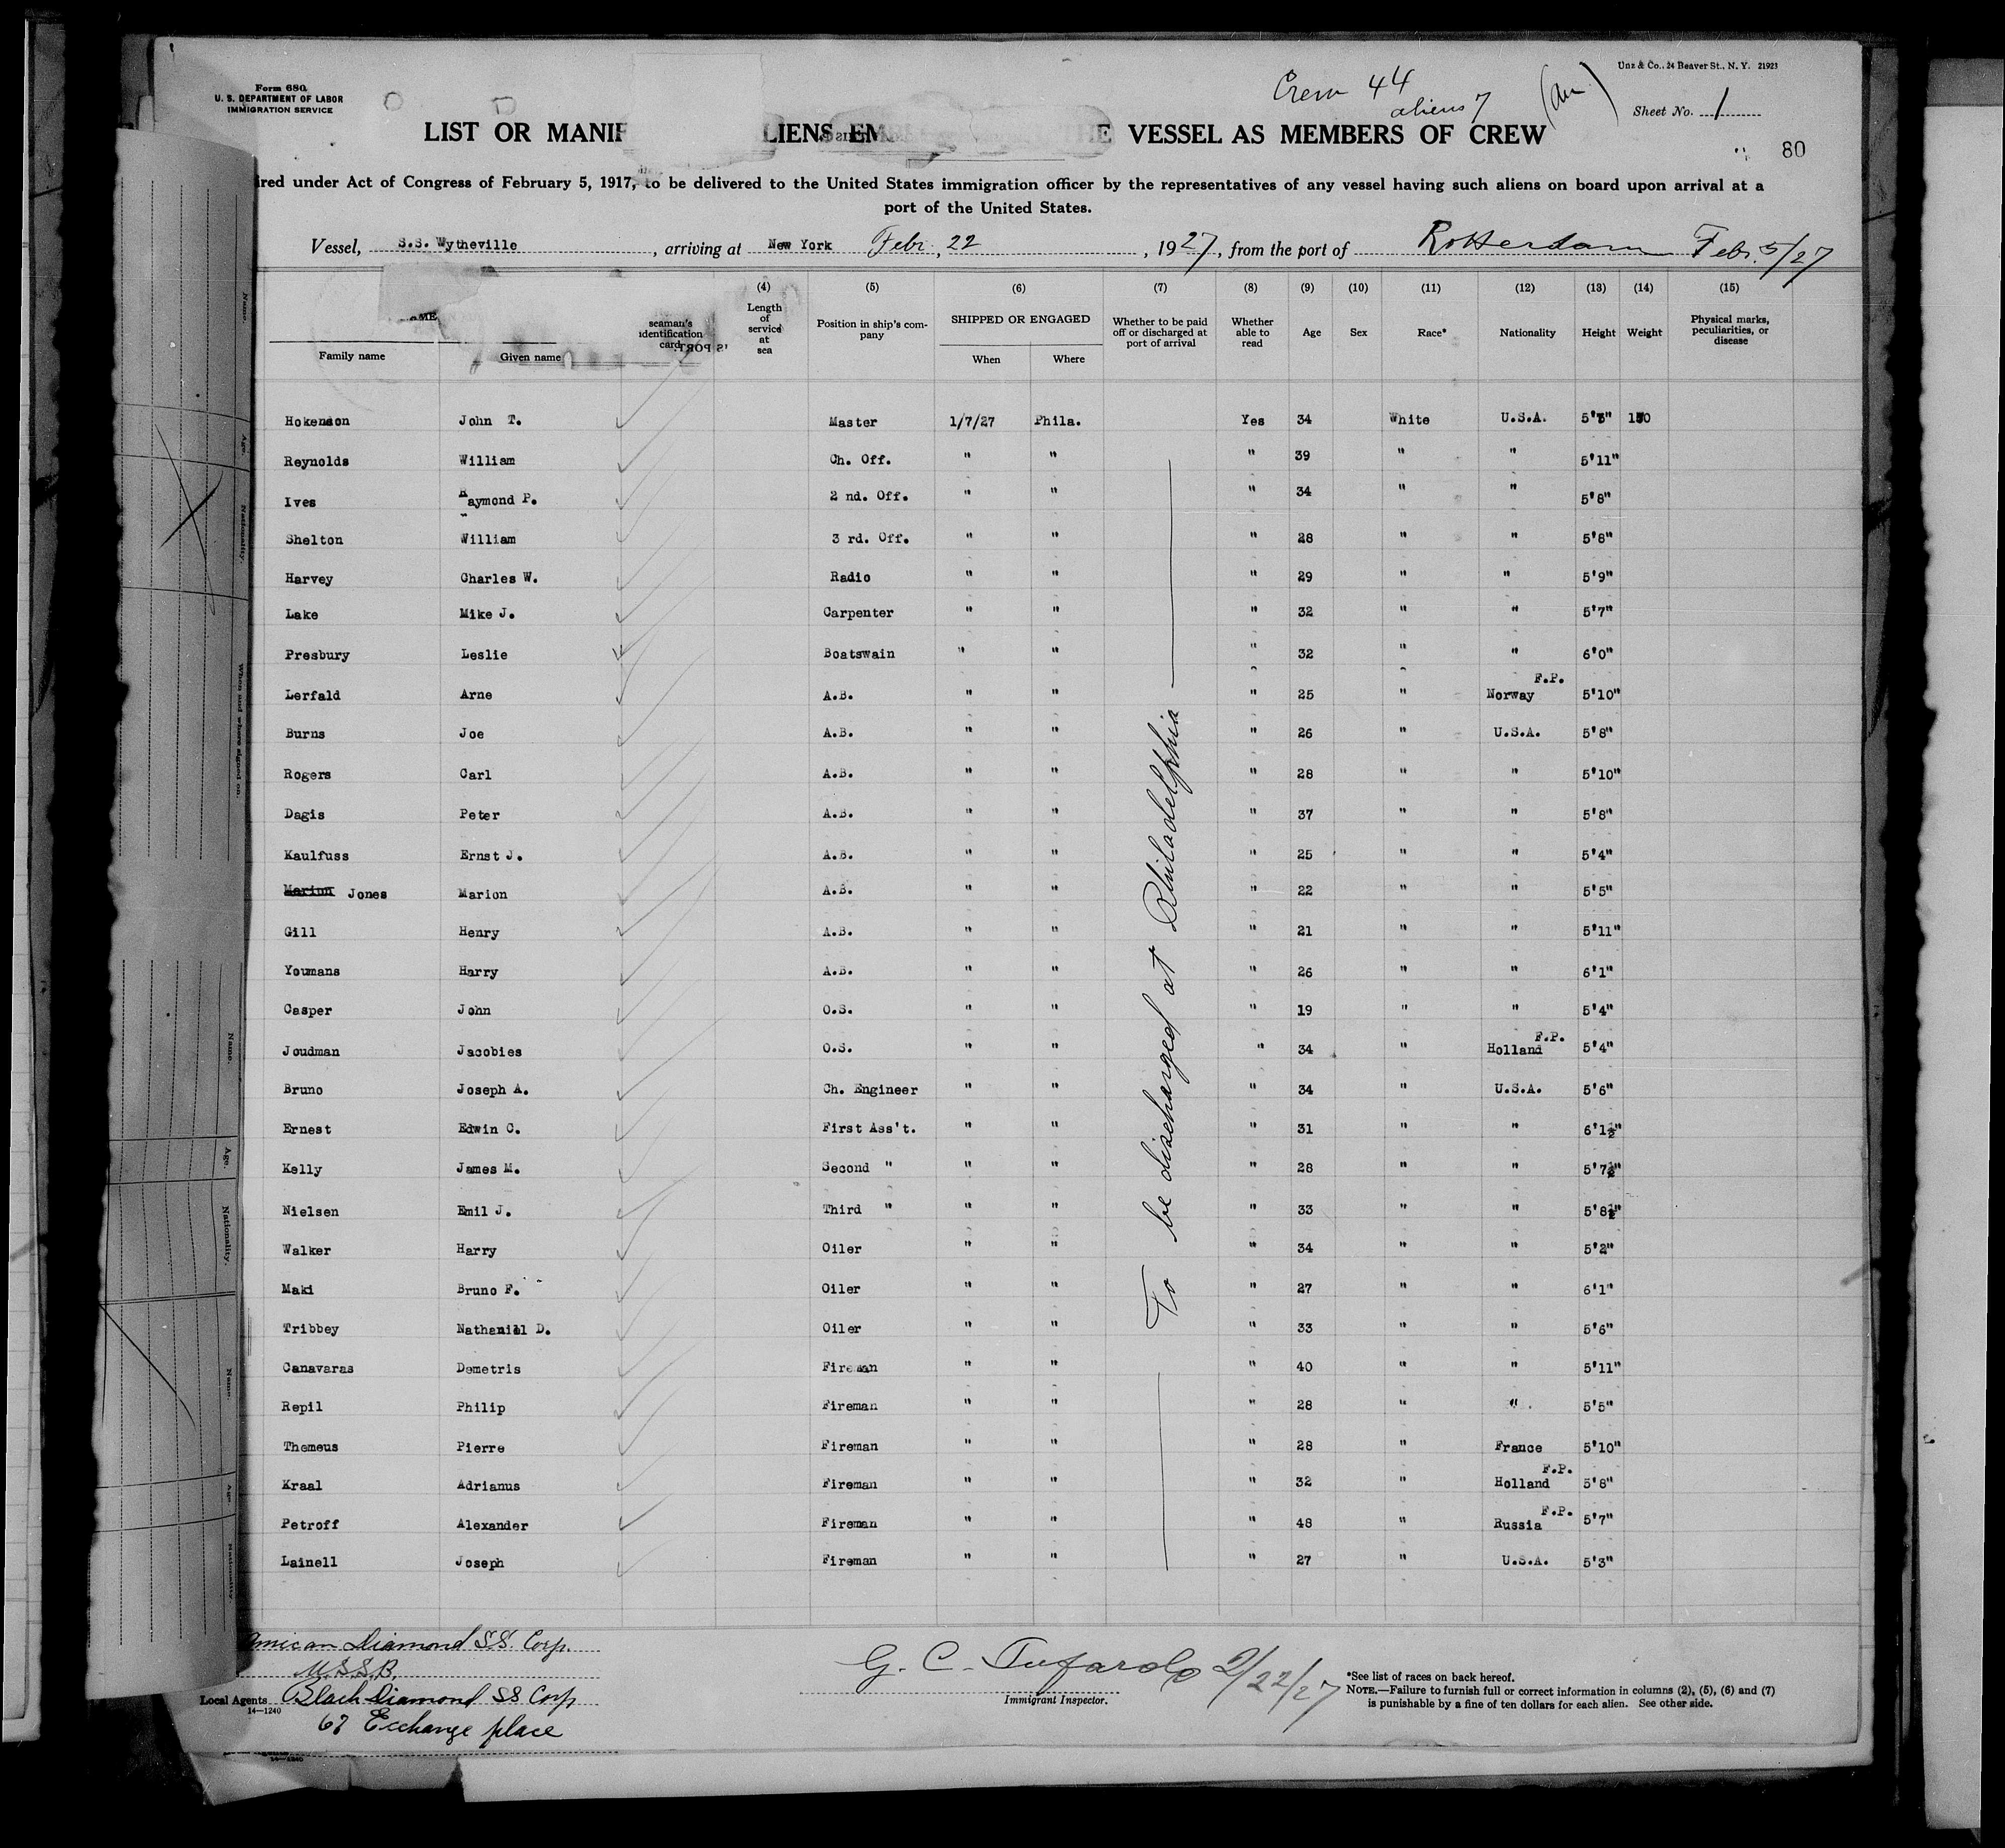 Form 680
U. S. DEPARTMENT OF LABOR
IMMIGRATION SERVICE
Unz & Co., 24 Beaver St., N. Y. 21923
Crew 44
aliens 7
Sheet No. 1
LIST OR MANIF LIENS EM E VESSEL AS MEMBERS OF CREW
80
ired under Act of Congress of February 5, 1917, to be delivered to the United States immigration officer by the representatives of any vessel having such aliens on board upon arrival at a
port of the United States.
Vessel, S.S. Wytheville, arriving at New York Febr. 22, 1927, from the port of Rotterdam Febr. 5/27
(4) (5) (6) (7) (8) (9) (10) (11) (12) (13) (14) (15)
Family name Given name seaman's identification card Length of service at sea Position in ship's company SHIPPED OR ENGAGED When Where Whether to be paid off or discharged at port of arrival Whether able to read Age Sex Race* Nationality Height Weight Physical marks, peculiarities, or disease
Hokenson John T. Master 1/7/27 Phila. Yes 34 White U.S.A.
Reynolds William Ch. Off. " " " 39 " " 5'11"
Ives Raymond P. 2 nd. Off. " " " 34 " " 5'8"
Shelton William 3 rd. Off. " " " 28 " " 5'8"
Harvey Charles W. Radio " " " 29 " " 5'9"
Lake Mike J. Carpenter " " " 32 " " 5'7"
Presbury Leslie Boatswain " " " 32 " " 6'0"
Lerfald Arne A.B. " " " 25 " Norway F.P. 5'10"
Burns Joe A.B. " " " 26 " U.S.A. 5'8"
Rogers Carl A.B. " " " 28 " " 5'10"
Dagis Peter A.B. " " " 37 " " 5'8"
Kaulfuss Ernst J. A.B. " " " 25 " " 5'4"
Marion Jones Marion A.B. " " " 22 " " 5'5"
Gill Henry A.B. " " " 21 " " 5'11"
Youmans Harry A.B. " " " 26 " " 6'1"
Casper John O.S. " " " 19 " " 5'4"
Joudman Jacobies O.S. " " " 34 " Holland F.P. 5'4"
Bruno Joseph A. Ch. Engineer " " " 34 " U.S.A. 5'6"
Ernest Edwin C. First Ass't. " " " 31 " " 6'1½"
Kelly James M. Second " " " " 28 " " 5'7½"
Nielsen Emil J. Third " " " " 33 " " 5'8½"
Walker Harry Oiler " " " 34 " " 5'2"
Maki Bruno F. Oiler " " " 27 " " 6'1"
Tribbey Nathaniel D. Oiler " " " 33 " " 5'6"
Canavaras Demetris Fireman " " " 40 " " 5'11"
Repil Philip Fireman " " " 28 " " 5'5"
Themeus Pierre Fireman " " " 28 " France 5'10"
Kraal Adrianus Fireman " " " 32 " Holland F.P. 5'8"
Petroff Alexander Fireman " " " 48 " Russia F.P. 5'7"
Lainell Joseph Fireman " " " 27 " U.S.A. 5'3"
To be discharged at Philadelphia
American Diamond S.S. Corp.
U.S.S.B.
Local Agents Black Diamond SS Corp
14—1240
67 Exchange place
G. C. Tufarolo 2/22/27
Immigrant Inspector.
*See list of races on back hereof.
NOTE.—Failure to furnish full or correct information in columns (2), (5), (6) and (7)
is punishable by a fine of ten dollars for each alien. See other side.